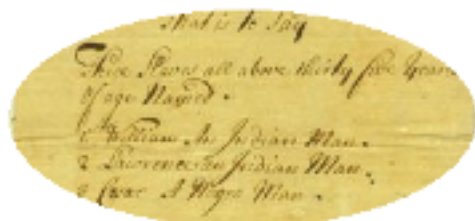 That is to Say
Three Slaves all above thirty five Years
Of age Named.
1 William An Indian Man.
2 Lawrence an Indian Man.
3 A Negro Man.